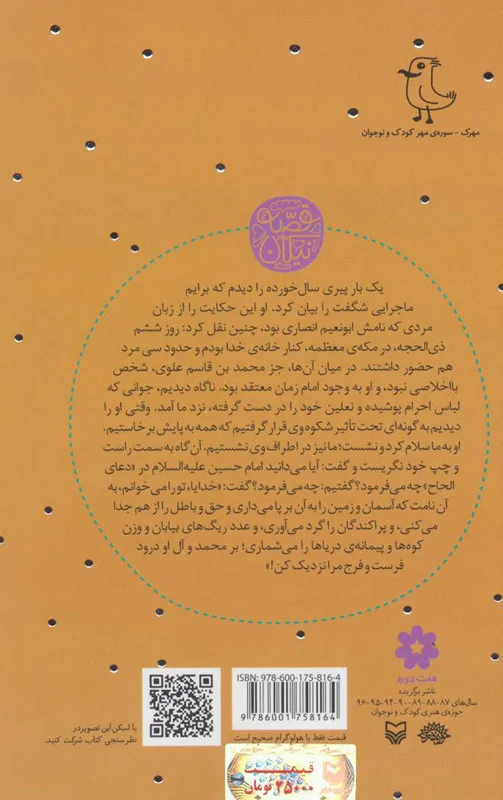 مهرک - سوره‌ی مهر کودک و نوجوان
قصه
نیکان
یک بار پیری سال‌خورده را دیدم که برایم
ماجرایی شگفت را بیان کرد. او این حکایت را از زبان
مردی که نامش ابونعیم انصاری بود، چنین نقل کرد: روز ششم
ذی‌الحجه، در مکه‌ی معظمه، کنار خانه‌ی خدا بودم و حدود سی مرد
هم حضور داشتند. در میان آن‌ها، جز محمد بن قاسم علوی، شخص
بااخلاصی نبود، و او به وجود امام زمان معتقد بود. ناگاه دیدیم، جوانی که
لباس احرام پوشیده و نعلین خود را در دست گرفته، نزد ما آمد. وقتی او را
دیدیم به گونه‌ای تحت تأثیر شکوه وی قرار گرفتیم که همه به پایش برخاستیم.
او به ما سلام کرد و نشست؛ ما نیز در اطراف وی نشستیم. آن‌گاه به سمت راست
و چپ خود نگریست و گفت: آیا می‌دانید امام حسین علیه‌السلام در «دعای
الحاح» چه می‌فرمود؟ گفتیم: چه می‌فرمود؟ گفت: «خدایا، تو را می‌خوانم، به
آن نامت که آسمان و زمین را به آن بر پا می‌داری و حق و باطل را از هم جدا
می‌کنی، و پراکندگان را گرد می‌آوری، و عدد ریگ‌های بیابان و وزن
کوه‌ها و پیمانه‌ی دریاها را می‌شماری؛ بر محمد و آل او درود
فرست و فرج مرا نزدیک کن!»
هفت دوره
ناشر برگزیده
سال‌های ۸۷-۸۸-۸۹-۹۰-۹۴-۹۵-۹۶
حوزه‌ی هنری کودک و نوجوان
ISBN: 978-600-175-816-4
9 786001 758164
قیمت فقط با هولوگرام صحیح است
با اسکن این تصویر در
نظرسنجی کتاب شرکت کنید.
قیمت
۲۵۰۰۰ تومان